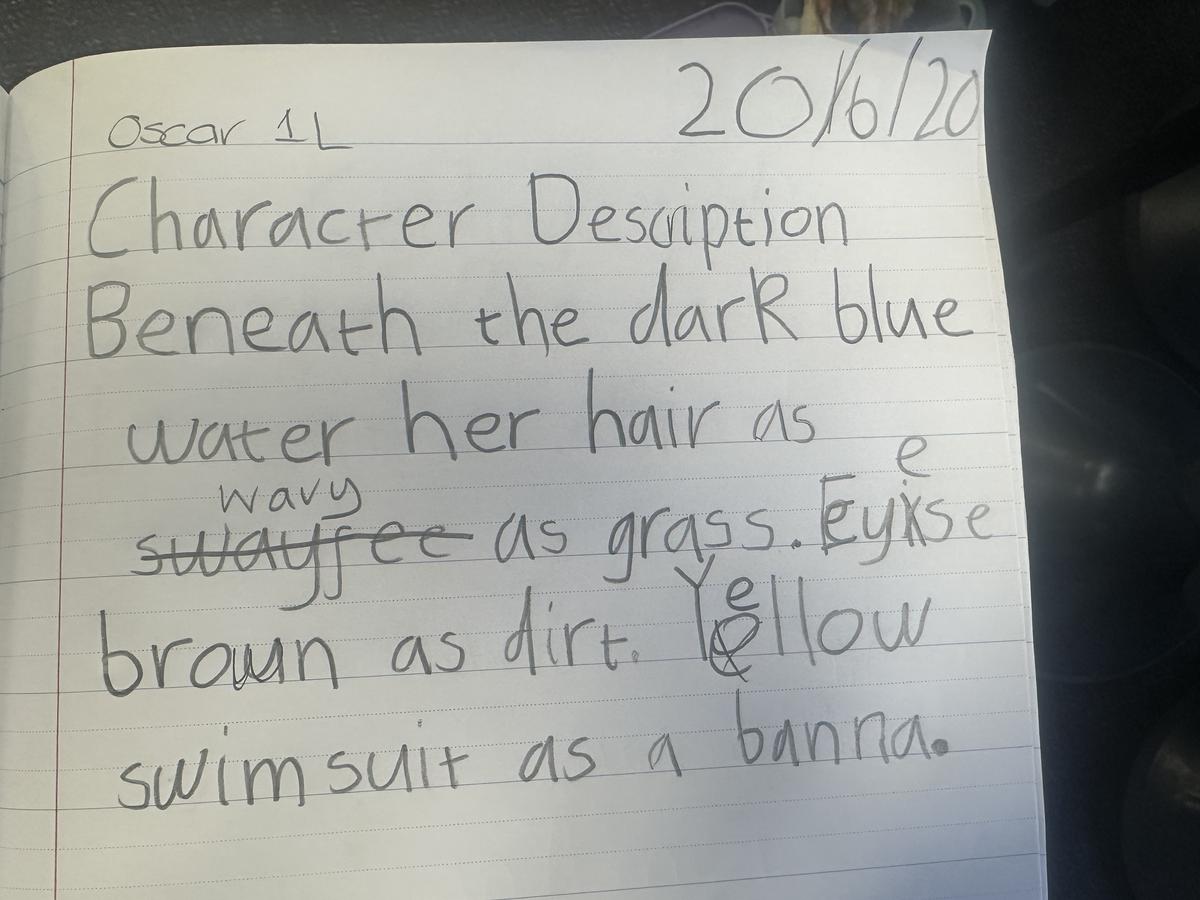 Oscar 1L 20/6/20
Character Description
Beneath the dark blue
water her hair as
wavy
swayfee as grass. Eyese
brown as dirt. Yellow
swimsuit as a banna.